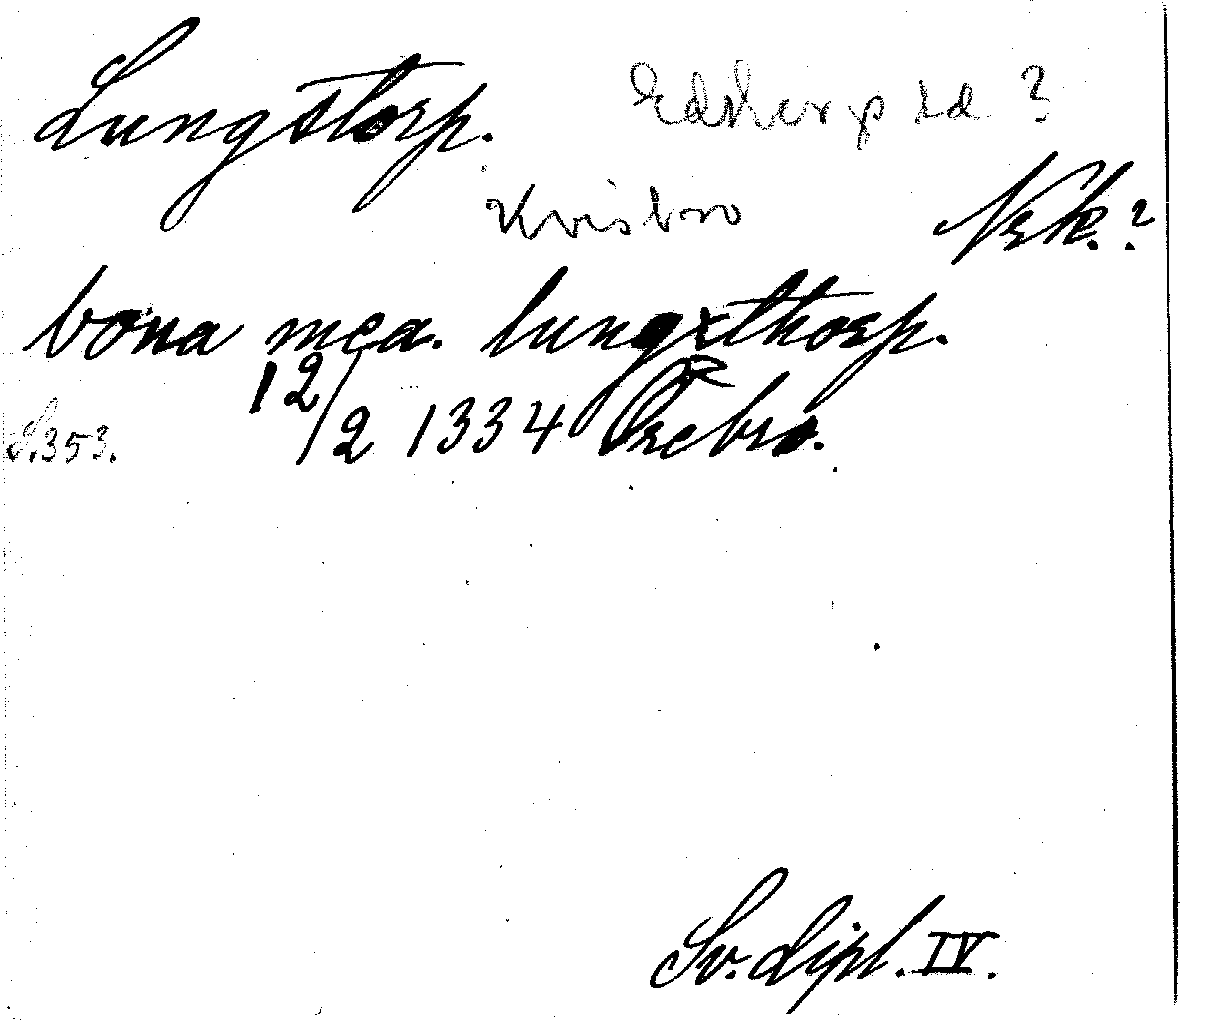 Lungstorp. Edsbergs hd ?
Kvisbro Nrk.?
bona mea. lungxthorp.
S.353. 12/2 1334 Örebro.
Sv. dipl. IV.